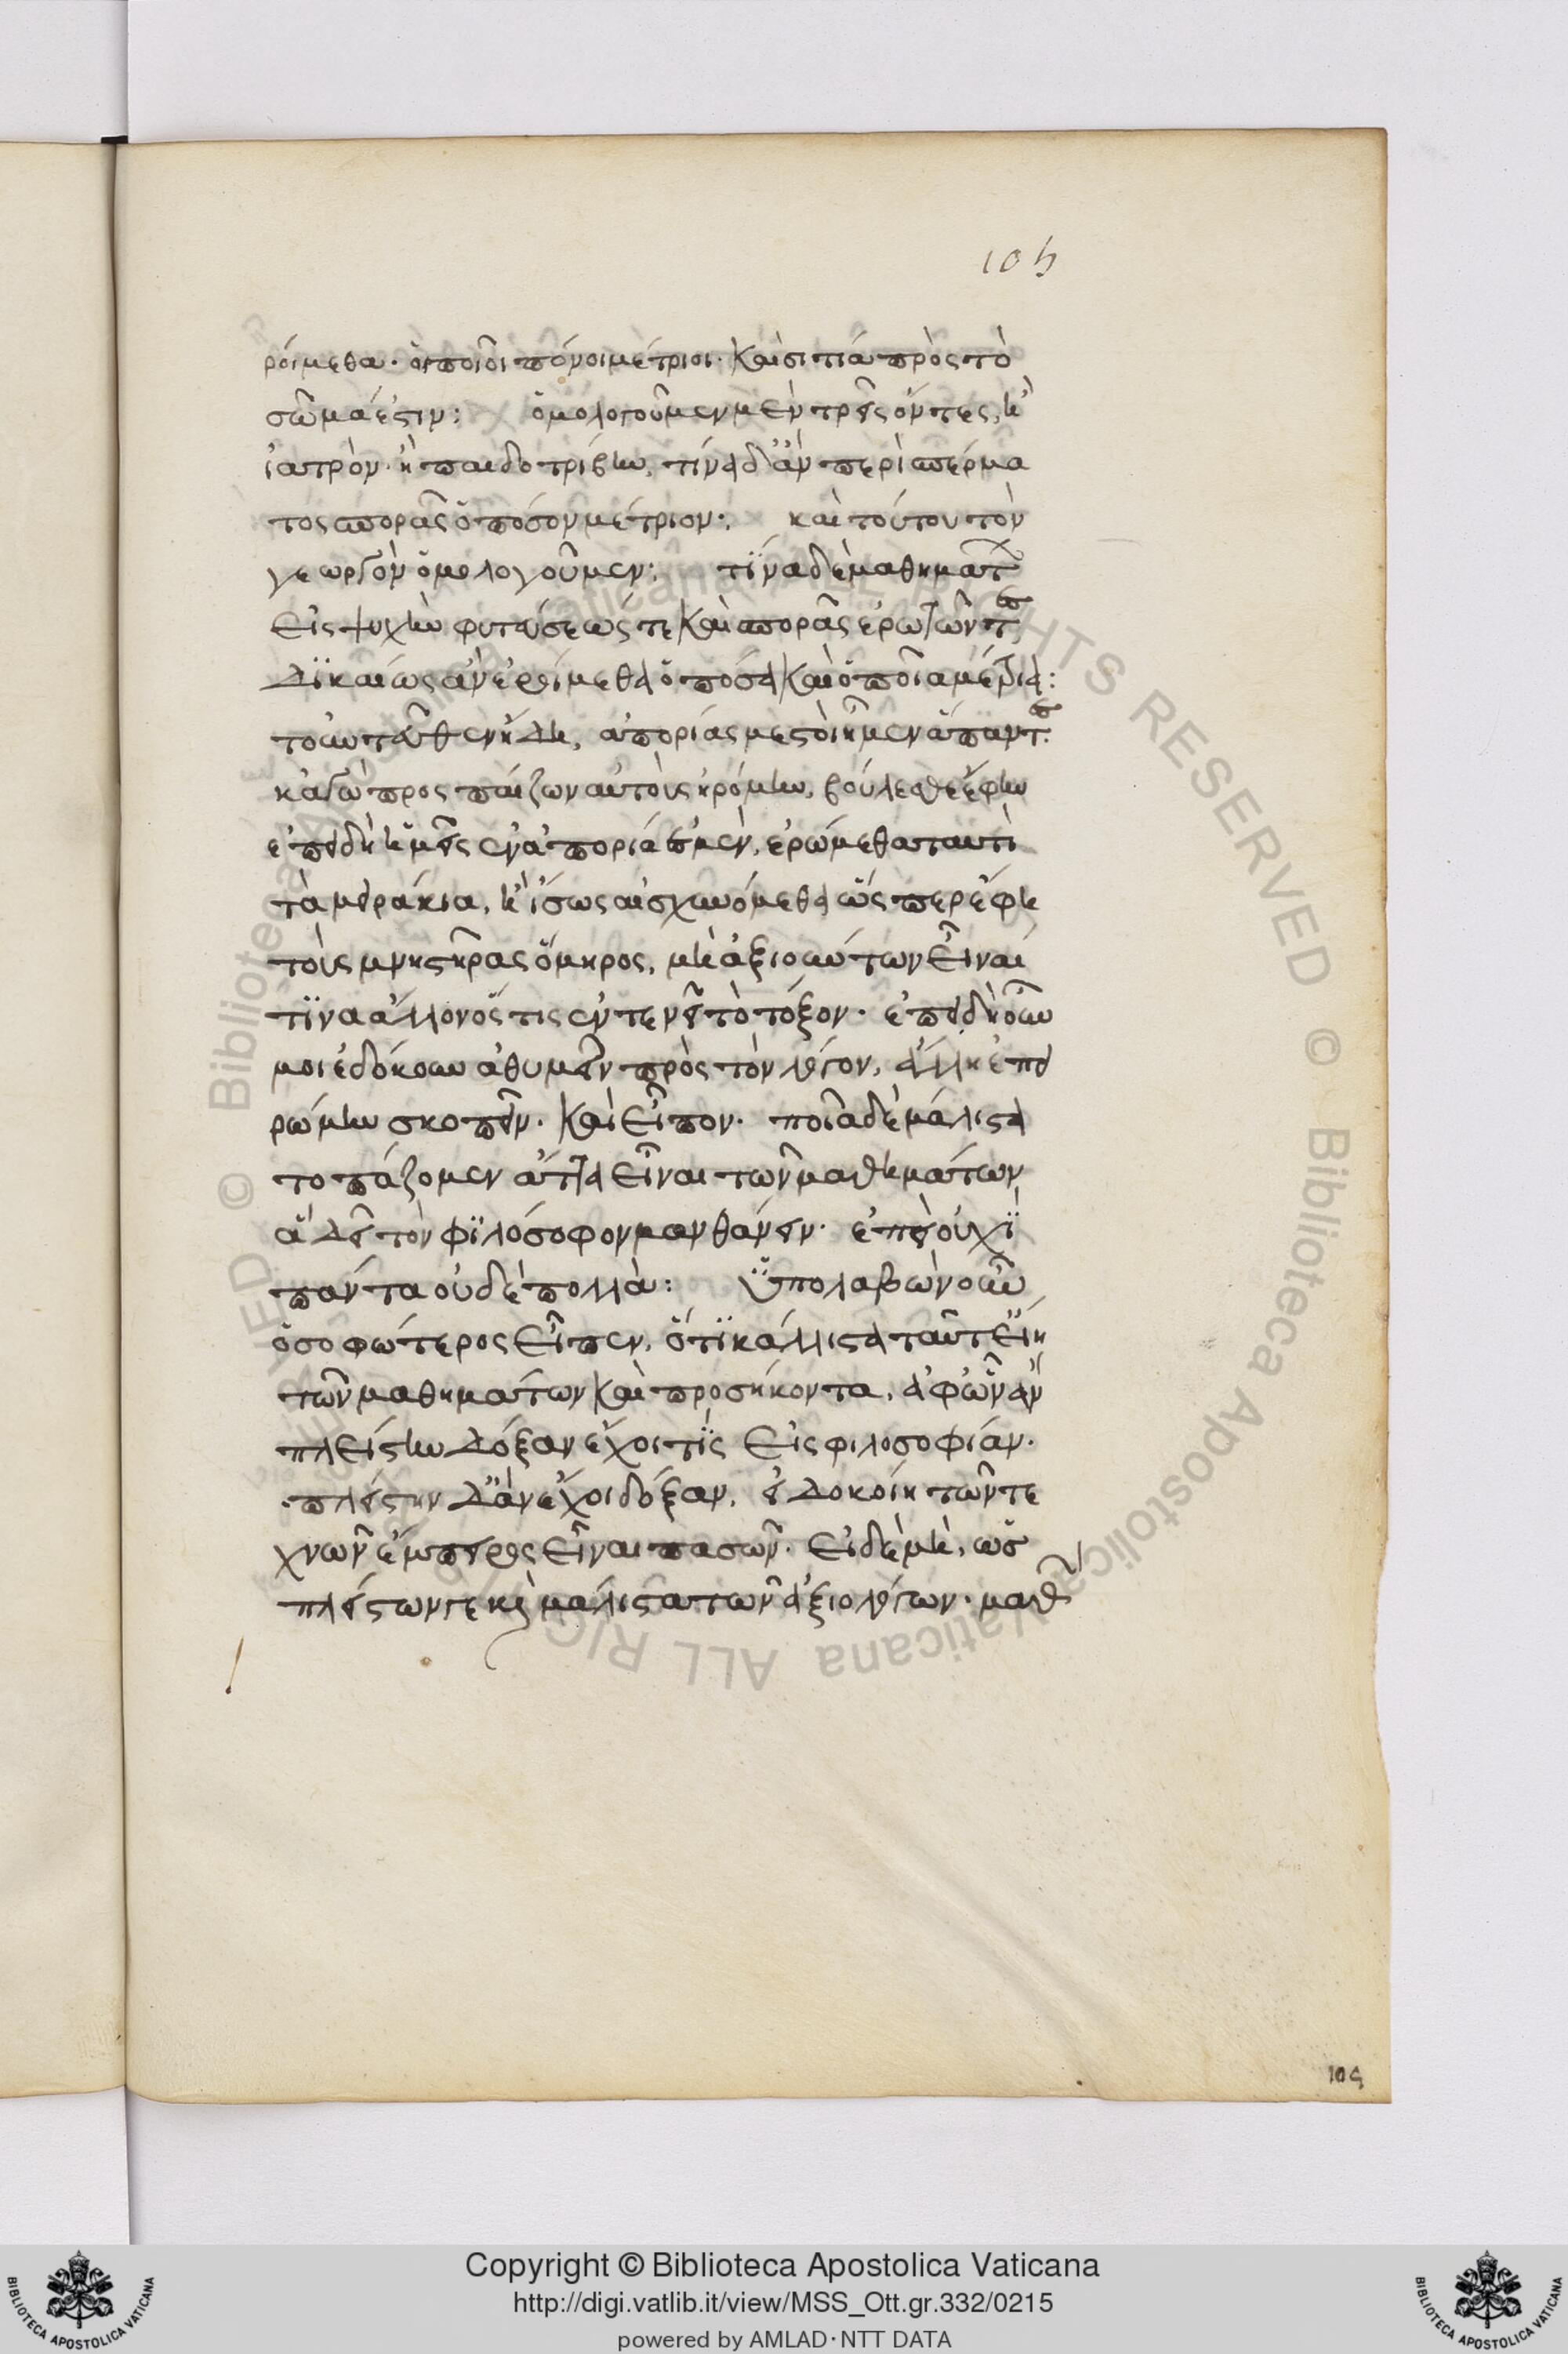 105
ρόιμεθα. ὁποῖοι πόνοι μέτριοι. καὶ σιτία πρὸς τὸ
σῶμά ἐστιν: ὁμολογοῦμεν μὲν τρεῖς ὄντες, ἢ
ἰατρὸν ἢ παιδοτρίβην, τίνα δ' ἂν περὶ σπέρμα
τος σπορᾶς ὁπόσον μέτριον: καὶ τούτου τὸν
γεωργὸν ὁμολογοῦμεν: τίνα δὲ μαθημάτων
εἰς ψυχὴν φυτεύσεώς τε καὶ σπορᾶς ἐρωτῶντες
δικαίως ἂν ἐροίμεθα ὁπόσα καὶ ὁποῖα μέτρια:
τοὐντεῦθεν ἤδη, ἀπορίας μεστοὶ ἦμεν ἅπαντες.
κἀγὼ προσπαίζων αὐτοὺς ἠρόμην, βούλεσθε ἔφην
ἐπειδὴ ἡμεῖς ἐν ἀπορία ἐσμὲν, ἐρώμεθα ταυτὶ
τὰ μειράκια, ἢ ἴσως αἰσχυνόμεθα ὥσπερ ἔφη
τοὺς μνηστῆρας ὅμηρος, μὴ ἀξιούντων εἶναί
τινα ἄλλον ὅστις ἐντενεῖ τὸ τόξον. ἐπειδὴ οὖν
μοι ἐδόκουν ἀθυμεῖν πρὸς τὸν λόγον, ἄλλη ἐπει
ρώμην σκοπεῖν. καὶ εἶπον. ποῖα δὲ μάλιστα
τοπάζομεν ἄττα εἶναι τῶν μαθημάτων
ἃ δεῖ τὸν φιλόσοφον μανθάνειν. ἐπεὶ οὐχὶ
πάντα οὐδὲ πολλὰ: ὑπολαβὼν οὖν
ὁ σοφώτερος εἶπεν, ὅτι κάλλιστα ταῦτ' εἴη
τῶν μαθημάτων καὶ προσήκοντα, ἀφ' ὧν ἂν
πλείστην δόξαν ἔχοι τις εἰς φιλοσοφίαν.
πλείστην δ' ἂν ἔχοι δόξαν, εἰ δοκοίη τῶν τε
χνῶν ἔμπειρος εἶναι πασῶν. εἰ δὲ μὴ, ὡς
πλείστων γε καὶ μάλιστα τῶν ἀξιολόγων. μαθ
105
© Biblioteca Apostolica Vaticana ALL RIGHTS RESERVED © Biblioteca Apostolica Vaticana ALL RIGHTS RESERVED
Copyright © Biblioteca Apostolica Vaticana
http://digi.vatlib.it/view/MSS_Ott.gr.332/0215
powered by AMLAD·NTT DATA
BIBLIOTECA APOSTOLICA VATICANA
BIBLIOTECA APOSTOLICA VATICANA